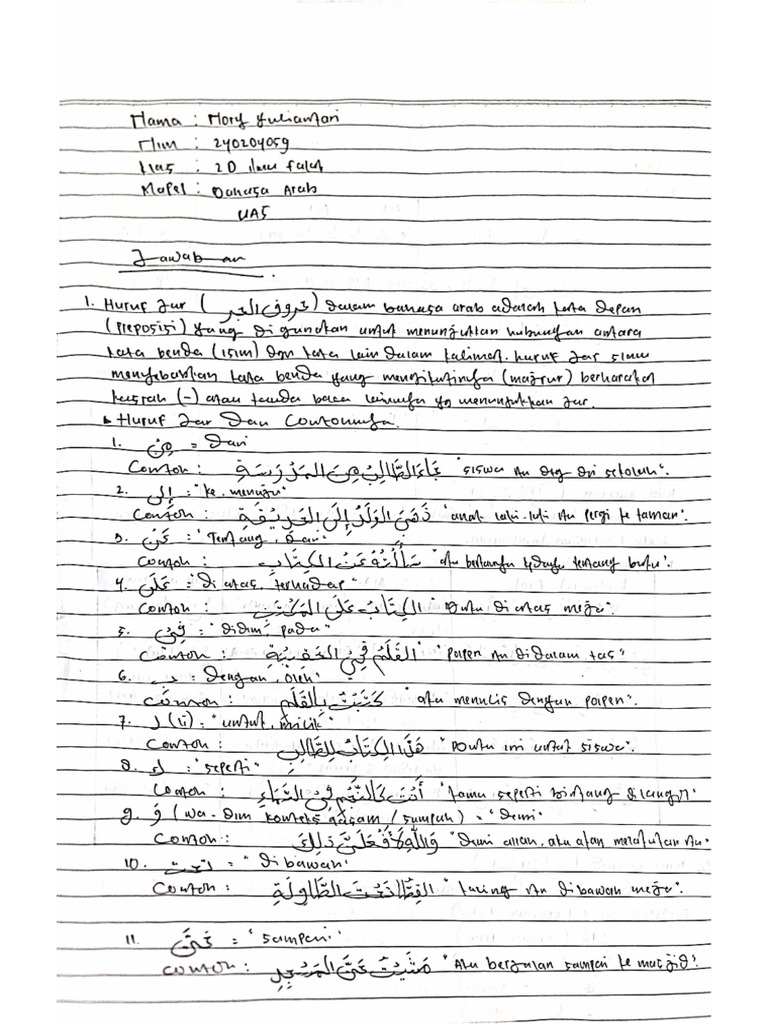 Nama : Mory Yuliantari
Nim : 240204059
Klas : 2D ilmu falak
Mapel : Bahasa Arab
UAS
Jawaban
1. Huruf Jar (حروف الجر) dalam bahasa arab adalah kata depan
(preposisi) yang di gunakan untuk menunjukkan hubungan antara
kata benda (isim) dgn kata lain dalam kalimat. huruf jar slalu
menyebabkan kata benda yang mengikutinya (majrur) berharakat
kasrah (-) atau tanda baca lainnya yg menunjukkan jar.
Huruf Jar dan Contohnya.
1. مِنْ = Dari
Contoh : جَاءَ الطَّالِبُ مِنَ المَدْرَسَةِ "siswa itu dtg dri sekolah".
2. إِلَى : "ke, menuju"
Contoh : ذَهَبَ الوَلَدُ إِلَى الحَدِيْقَةِ "anak laki-laki itu pergi ke taman".
3. عَنْ : "Tentang, dari"
Contoh : سَأَلْتُهُ عَنْ الكِتَابِ "aku bertanya kpdaya tentang buku".
4. عَلَى = "Di atas, terhadap"
Contoh : الكِتَابُ عَلَى المَكْتَبِ "Buku di atas meja".
5. فِيْ : "didlm, pada"
Contoh : القَلَمُ فِيْ الحَقِيْبَةِ "pulpen itu didalam tas"
6. بِ = "Dengan, oleh"
Contoh : كَتَبْتُ بِالقَلَمِ "aku menulis dengan pulpen".
7. لِ (li) : "untuk, milik"
Contoh : هَذَا الكِتَابُ لِلطَّالِبِ "Buku ini untuk siswa".
8. كَ : "seperti"
Contoh : أَنْتَ كَالنَّجْمِ فِيْ السَّمَاءِ "kamu seperti bintang dilangit"
9. وَ (wa-dlm konteks qasam / sumpah) = "Demi"
Contoh : وَاللّٰهِ لَأَفْعَلَنَّ ذَلِكَ "Demi allah, aku akan melakukan itu"
10. تحت = "dibawah"
Contoh : القِطُّ تَحْتَ الطَّاوِلَةِ "kucing itu dibawah meja".
11. حَتَّى = "sampai"
Contoh : مَشَيْتُ حَتَّى المَسْجِدِ "Aku berjalan sampai ke masjid".